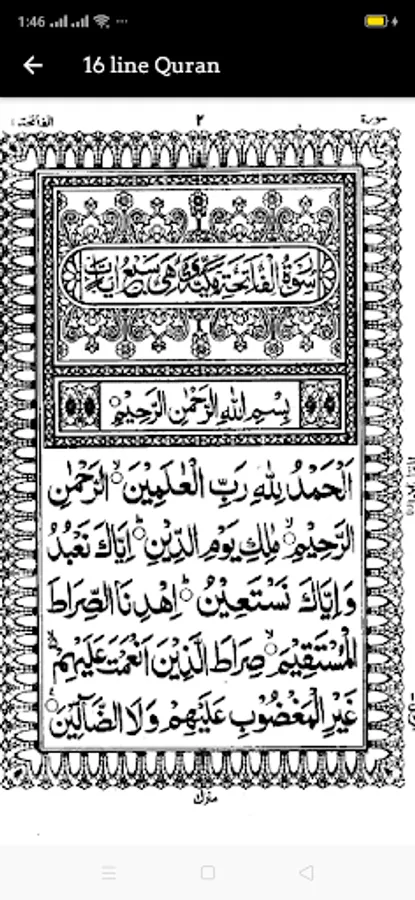 1:46
16 line Quran
سورة ٢ الفاتحة ١
سُوْرَةُ الْفَاتِحَةِ مَكِّيَّةٌ وَّهِيَ سَبْعُ اٰيَاتٍ
بِسْمِ اللّٰهِ الرَّحْمٰنِ الرَّحِيْمِ
اَلْحَمْدُ لِلّٰهِ رَبِّ الْعٰلَمِيْنَ ۙ الرَّحْمٰنِ
الرَّحِيْمِ ۙ مٰلِكِ يَوْمِ الدِّيْنِ ؕ اِيَّاكَ نَعْبُدُ
وَاِيَّاكَ نَسْتَعِيْنُ ؕ اِهْدِنَا الصِّرَاطَ
الْمُسْتَقِيْمَ ۙ صِرَاطَ الَّذِيْنَ اَنْعَمْتَ عَلَيْهِمْ
غَيْرِ الْمَغْضُوْبِ عَلَيْهِمْ وَلَا الضَّآلِّيْنَ
منزل